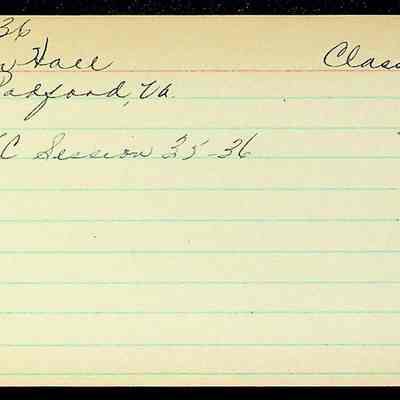 36
Hall Class
Radford, Va.
C Session 35-36